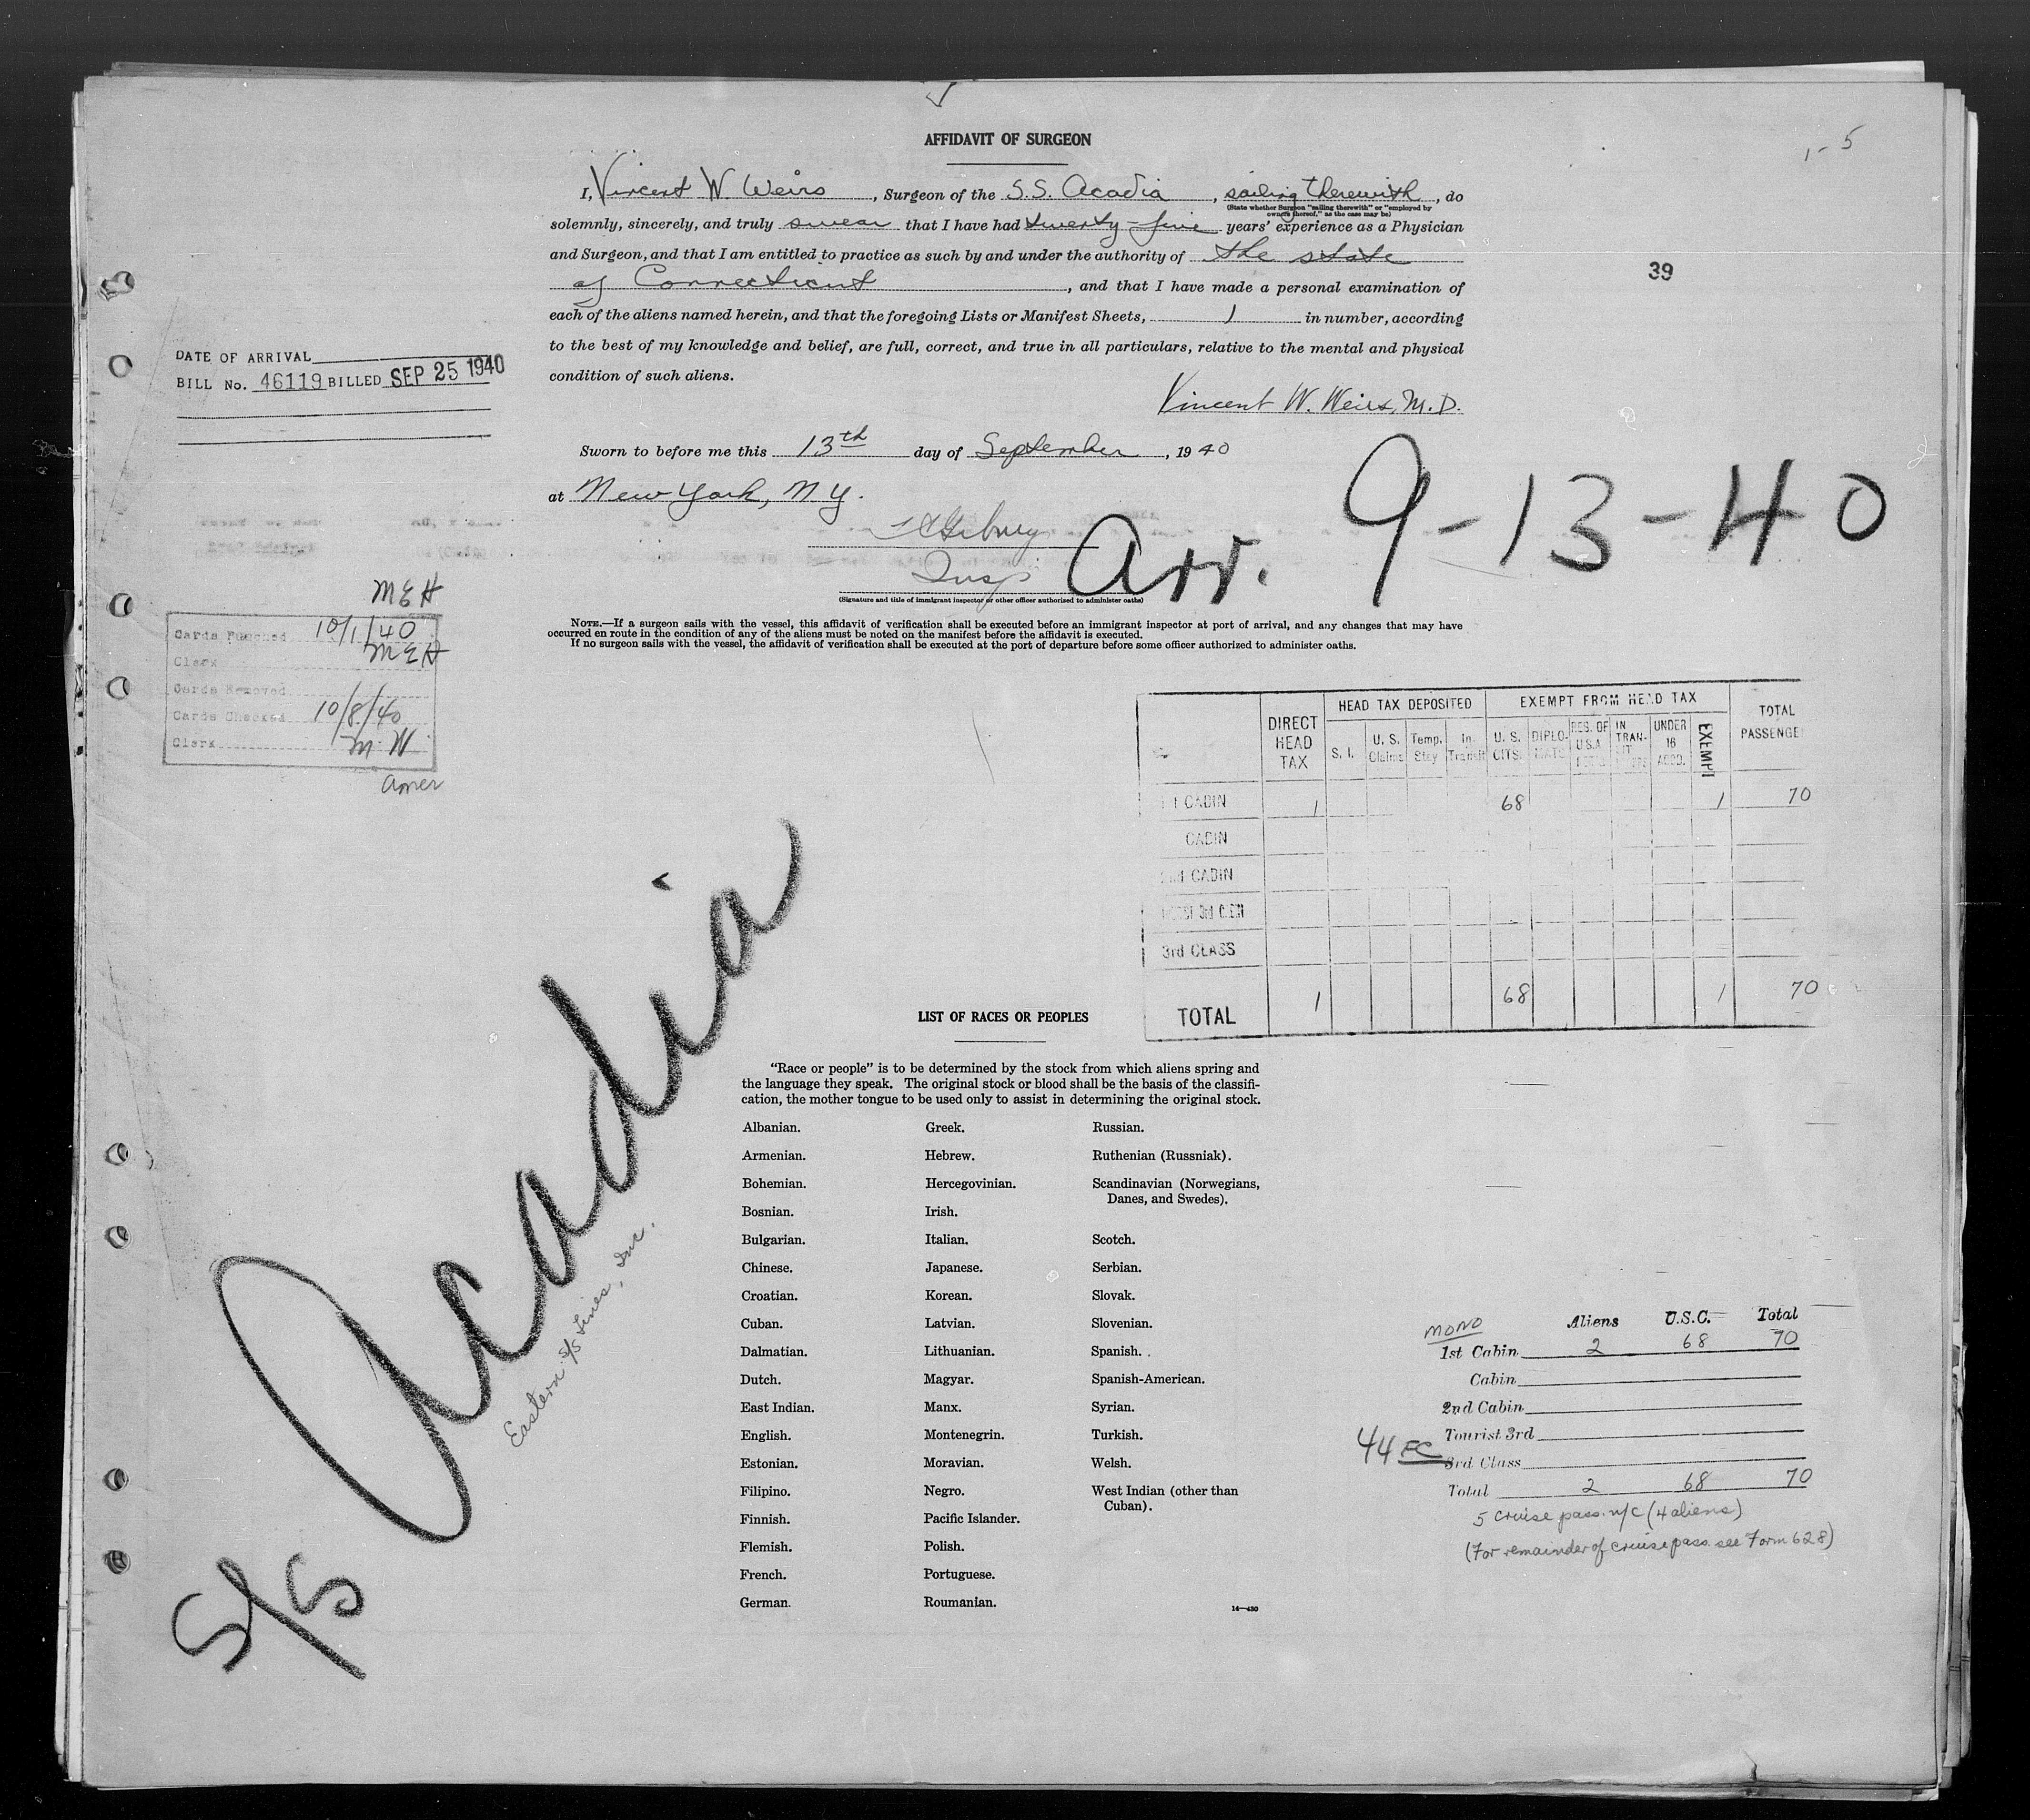 AFFIDAVIT OF SURGEON
1-5
I, Vincent W. Weirs, Surgeon of the S.S. Acadia, sailing therewith, do
(State whether Surgeon "sailing therewith" or "employed by
owners thereof," as the case may be)
solemnly, sincerely, and truly swear that I have had twenty-five years' experience as a Physician
and Surgeon, and that I am entitled to practice as such by and under the authority of the state
of Connecticut, and that I have made a personal examination of
each of the aliens named herein, and that the foregoing Lists or Manifest Sheets, 1 in number, according
to the best of my knowledge and belief, are full, correct, and true in all particulars, relative to the mental and physical
condition of such aliens.
Vincent W. Weirs, M.D.
39
DATE OF ARRIVAL
BILL No. 46119 BILLED SEP 25 1940
Sworn to before me this 13th day of September, 1940
at New York, N.Y.
Insp
(Signature and title of immigrant inspector or other officer authorized to administer oaths)
Arr. 9-13-40
NOTE.—If a surgeon sails with the vessel, this affidavit of verification shall be executed before an immigrant inspector at port of arrival, and any changes that may have
occurred en route in the condition of any of the aliens must be noted on the manifest before the affidavit is executed.
If no surgeon sails with the vessel, the affidavit of verification shall be executed at the port of departure before some officer authorized to administer oaths.
MEH
Cards Punched 10/1/40
Clerk MEH
Cards Removed
Cards Checked 10/8/40
Clerk M W
Amer
DIRECT HEAD TAX
HEAD TAX DEPOSITED
EXEMPT FROM HEAD TAX
TOTAL PASSENGE
S. I. U. S. Claims Temp. Stay In Transit U. S. CITS. DIPLO-MATS RES. OF U.S.A. IN TRAN-SIT UNDER 16 ACCD. EXEMPT
CABIN 1 68 1 70
CABIN
2nd CABIN
3rd
3rd CLASS
TOTAL 1 68 1 70
S/S Acadia
Eastern S/S Lines, Inc.
LIST OF RACES OR PEOPLES
"Race or people" is to be determined by the stock from which aliens spring and
the language they speak. The original stock or blood shall be the basis of the classifi-
cation, the mother tongue to be used only to assist in determining the original stock.
Albanian.
Armenian.
Bohemian.
Bosnian.
Bulgarian.
Chinese.
Croatian.
Cuban.
Dalmatian.
Dutch.
East Indian.
English.
Estonian.
Filipino.
Finnish.
Flemish.
French.
German.
Greek.
Hebrew.
Hercegovinian.
Irish.
Italian.
Japanese.
Korean.
Latvian.
Lithuanian.
Magyar.
Manx.
Montenegrin.
Moravian.
Negro.
Pacific Islander.
Polish.
Portuguese.
Roumanian.
Russian.
Ruthenian (Russniak).
Scandinavian (Norwegians,
Danes, and Swedes).
Scotch.
Serbian.
Slovak.
Slovenian.
Spanish.
Spanish-American.
Syrian.
Turkish.
Welsh.
West Indian (other than
Cuban).
14—430
MONO Aliens U.S.C. Total
1st Cabin 2 68 70
Cabin
2nd Cabin
Tourist 3rd
44 FC
3rd Class
Total 2 68 70
5 cruise pass. n/c (4 aliens)
(For remainder of cruise pass. see Form 628)